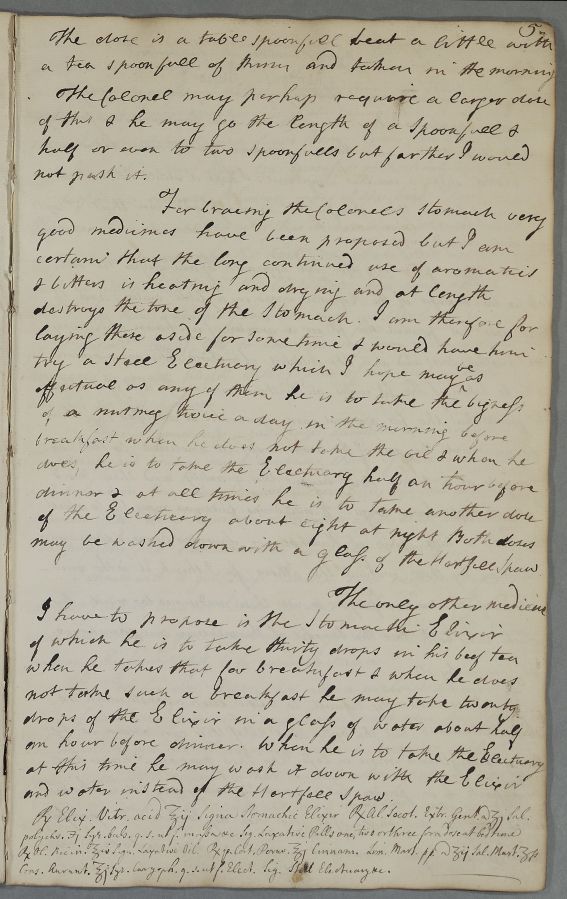 5
The dose is a table spoonfull beat a little with
a tea spoonfull of and taken in the morning
The Colonel may perhaps require a larger dose
of this & he may go the length of a Spoonfull &
half or even to two spoonfulls but farther I would
not push it.
For bracing the Colonels stomach very
good medicines have been proposed but I am
certain that the long continued use of aromatics
& bitters is heating and drying and at length
destroys the tone of the Stomach. I am therefore for
laying these aside for some time & would have him
try a Steel Electuary which I hope may be as
effectual as any of them he is to take the bigness
of a nutmeg twice a day in the morning before
breakfast when he does not take the oil & when he
does, he is to take the Electuary half an hour before
dinner & at all times he is to take another dose
of the Electuary about eight at night Both doses
may be washed down with a glass of the Hartfell Spaw
The only other medicine
I have to propose is the Stomachic Elixir
of which he is to take thirty drops in his beef tea
when he takes that for breakfast & when he does
not take such a breakfast he may take twenty
drops of the Elixir in a glass of water about half
an hour before dinner. When he is to take the Electuary
at this time he may wash it down with the Elixir
and water instead of the Hartfell Spaw
Rx Elix. Vitr. acid ℥ij Signa Stomachic Elixir Rx Al. Socot. Extr. Gent. a ʒij Sal.
polychr. ʒj Syr. q. s. ut f. Massae Sig. Laxative Pills one, two or three for a dose at bed time
Rx Ol. Ricin. Sign. Laxative Oil. Rx pulv. Cort. Peruv. ℥j Cinnam. Lim. Mart. pp a ʒij Sal. Mart. ʒss
Cons. Aurant. ℥j Syr. caryoph. q. s. ut f. Elect. Sig. Steel Electuary.